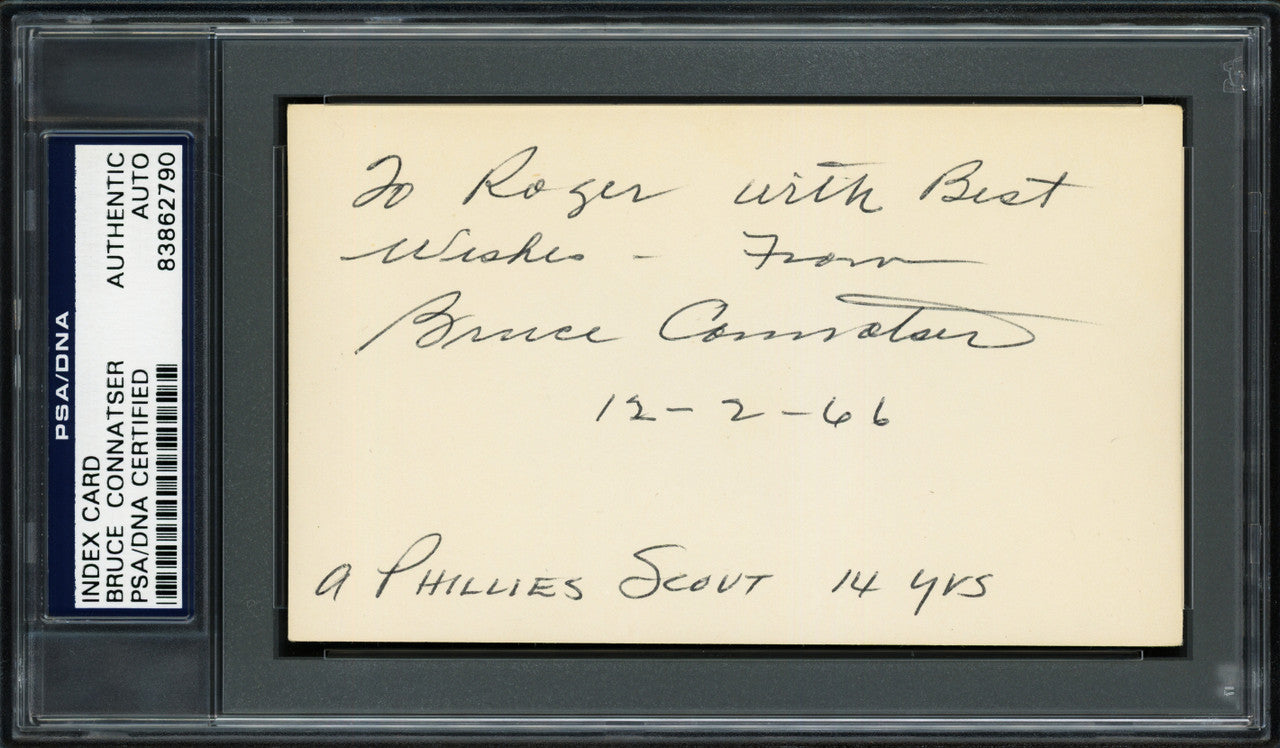 PSA/DNA
INDEX CARD
BRUCE CONNATSER
PSA/DNA CERTIFIED
AUTHENTIC
AUTO
83862790
To Roger with Best
Wishes - From
Bruce Connatser
12-2-66
a PHILLIES SCOUT 14 yrs